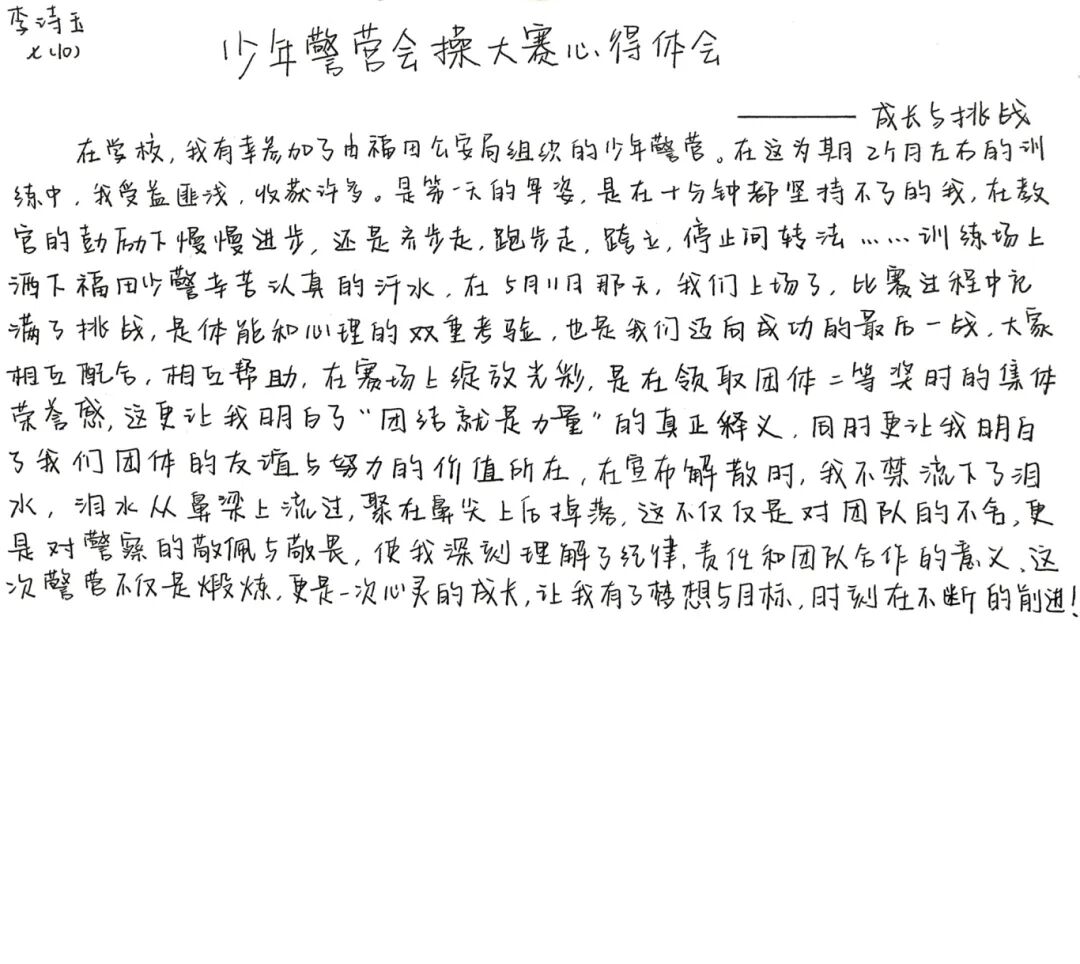 李诗玉
七(10)
少年警营会操大赛心得体会
——成长与挑战
在学校,我有幸参加了由福田公安局组织的少年警营。在这为期2个月左右的训
练中,我受益匪浅,收获许多。是第一天的军姿,是在十分钟都坚持不了的我,在教
官的鼓励下慢慢进步,还是齐步走,跑步走,跨立,停止间转法……训练场上
洒下福田少警辛苦认真的汗水,在5月11日那天,我们上场了,比赛过程中充
满了挑战,是体能和心理的双重考验,也是我们迈向成功的最后一战,大家
相互配合,相互帮助,在赛场上绽放光彩,是在领取团体二等奖时的集体
荣誉感,这更让我明白了“团结就是力量”的真正释义,同时更让我明白
了我们团体的友谊与努力的价值所在,在宣布解散时,我不禁流下了泪
水,泪水从鼻梁上流过,聚在鼻尖上后掉落,这不仅仅是对团队的不舍,更
是对警察的敬佩与敬畏,使我深刻理解了纪律,责任和团队合作的意义、这
次警营不仅是煅炼,更是一次心灵的成长,让我有了梦想与目标,时刻在不断的前进!